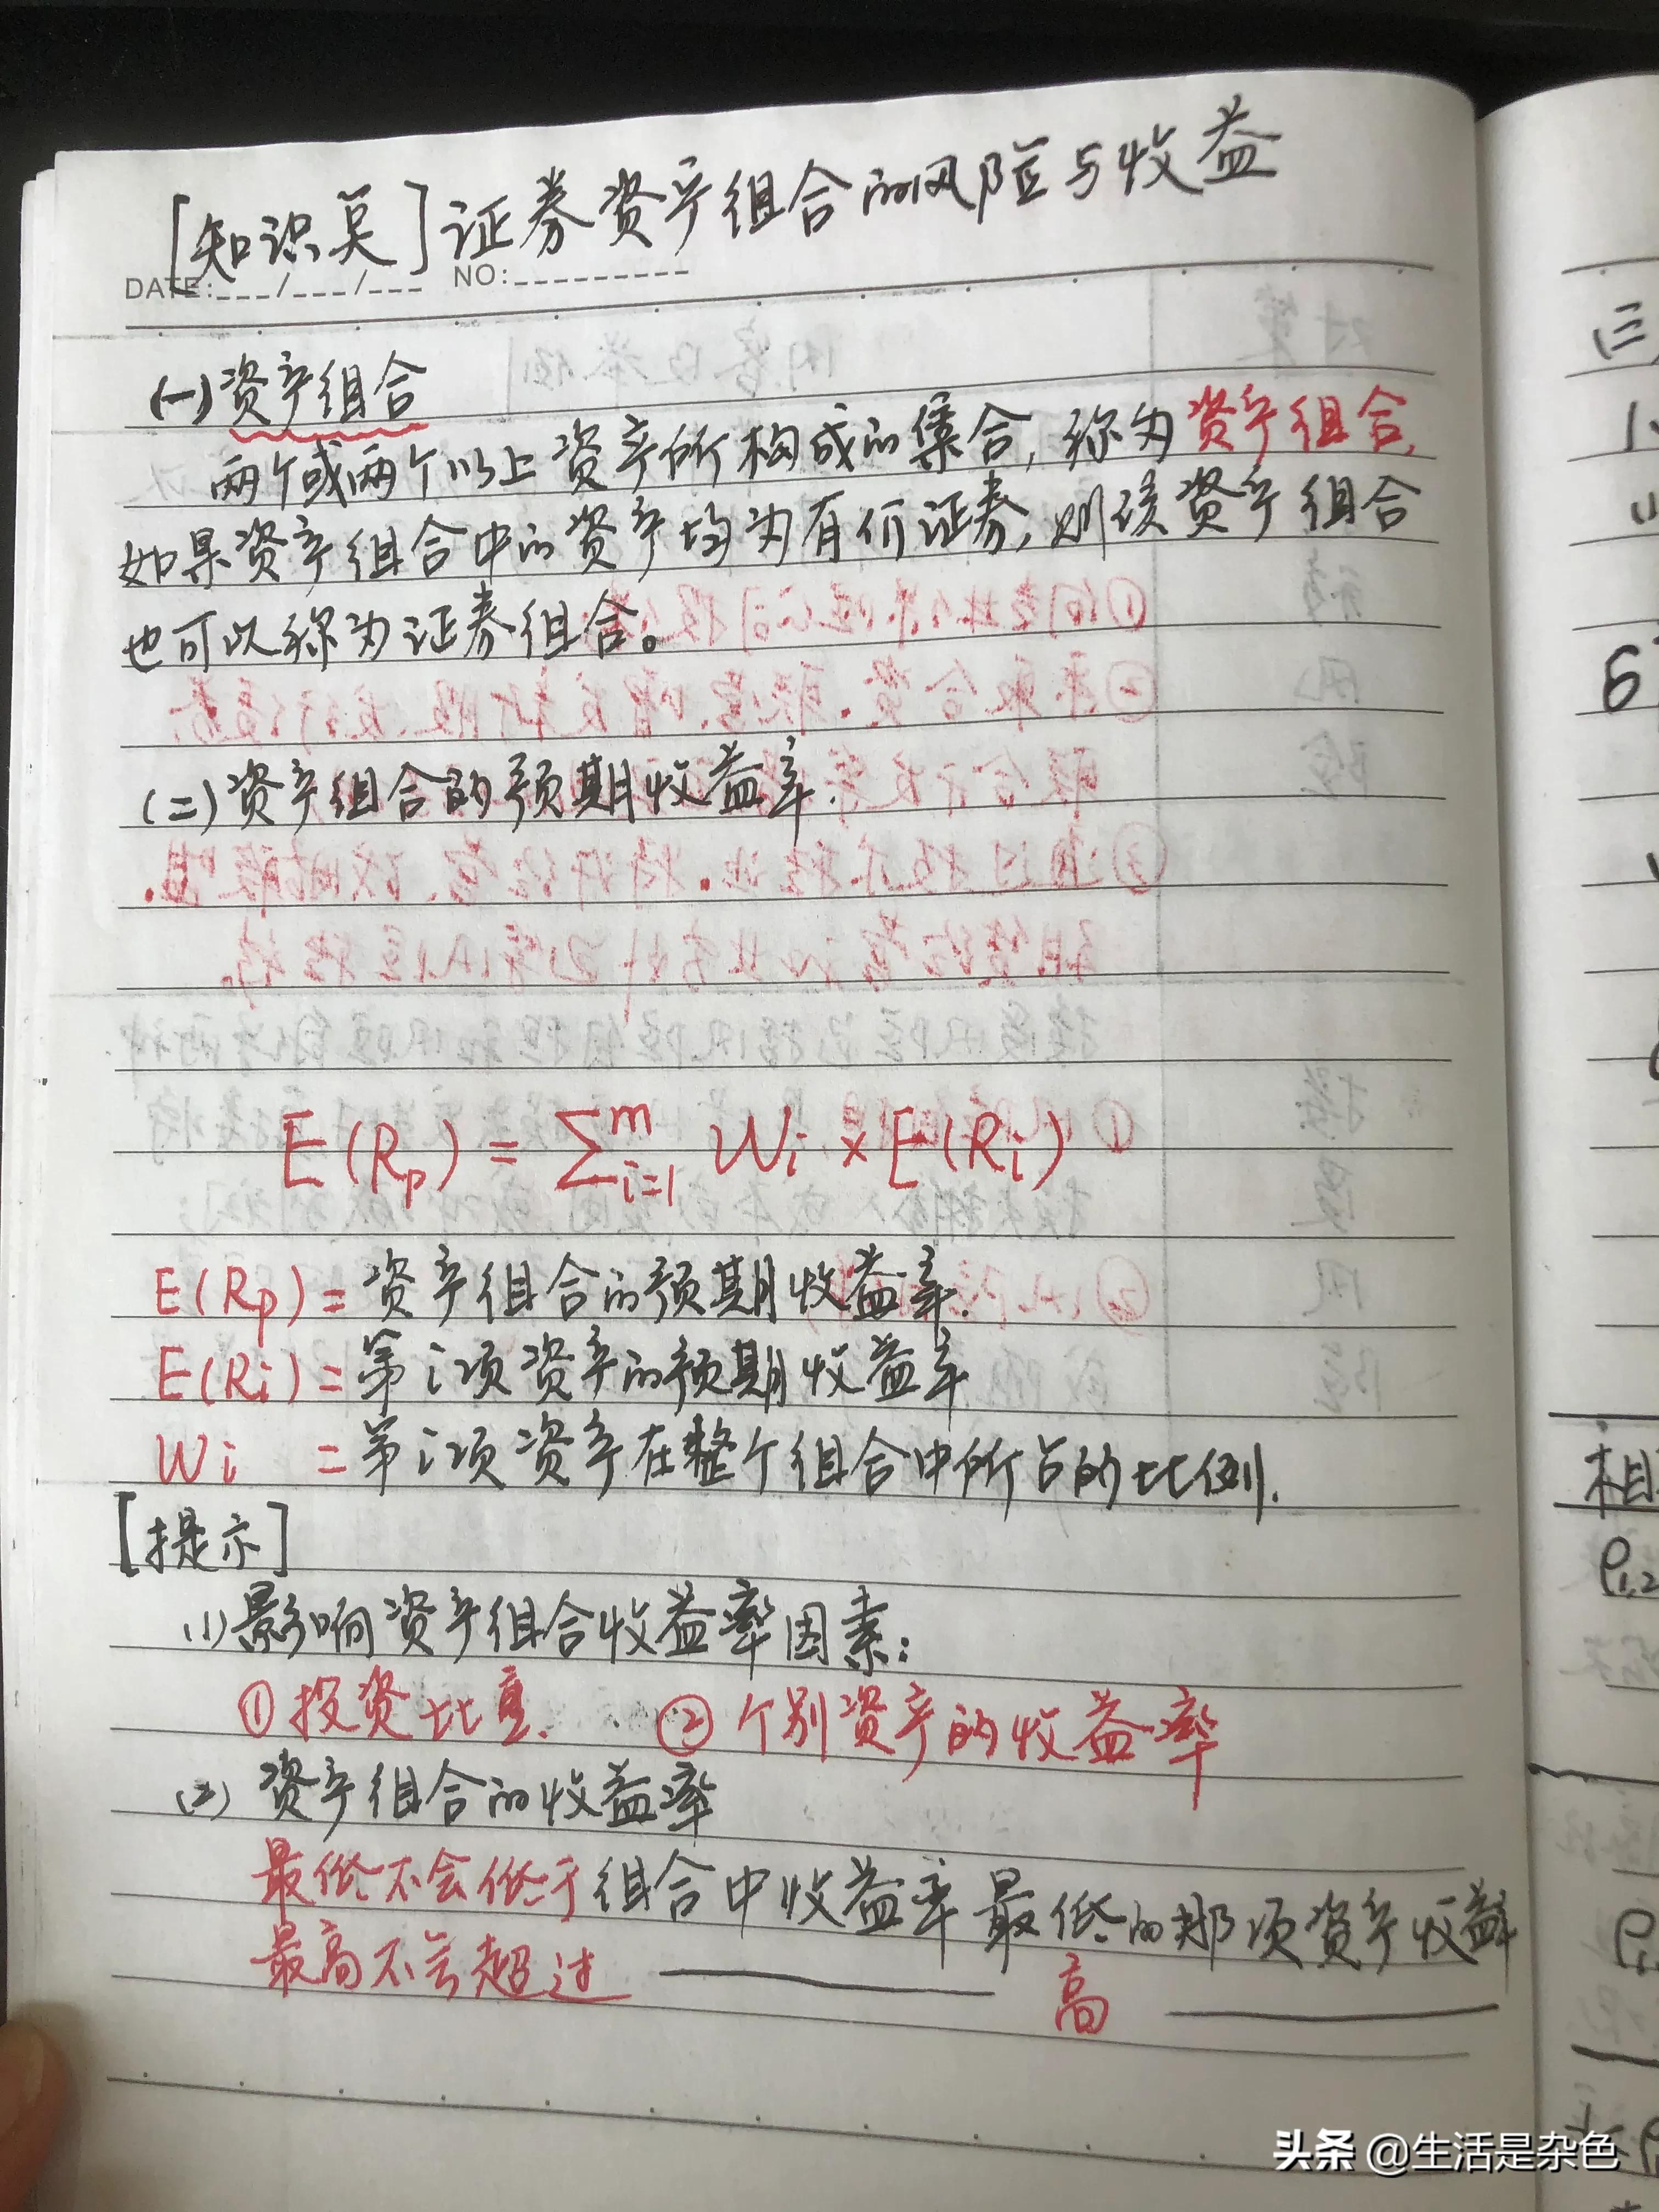 [知识点]证券资产组合的风险与收益
DATE:___/___/___ NO:_________
(一)资产组合
两个或两个以上资产所构成的集合,称为资产组合,
如果资产组合中的资产均为有价证券,则该资产组合
也可以称为证券组合。
(二)资产组合的预期收益率.
E(Rp) = ∑ᵐᵢ₌₁ Wi × E(Ri)
E(Rp) = 资产组合的预期收益率.
E(Ri) = 第i项资产的预期收益率
Wi = 第i项资产在整个组合中所占的比例.
[提示]
(1)影响资产组合收益率因素:
①投资比重. ②个别资产的收益率
(2) 资产组合的收益率
最低不会低于组合中收益率最低的那项资产收益率
最高不会超过 ———— 高 ————
三
6
相
ρ1,2
头条 @生活是杂色